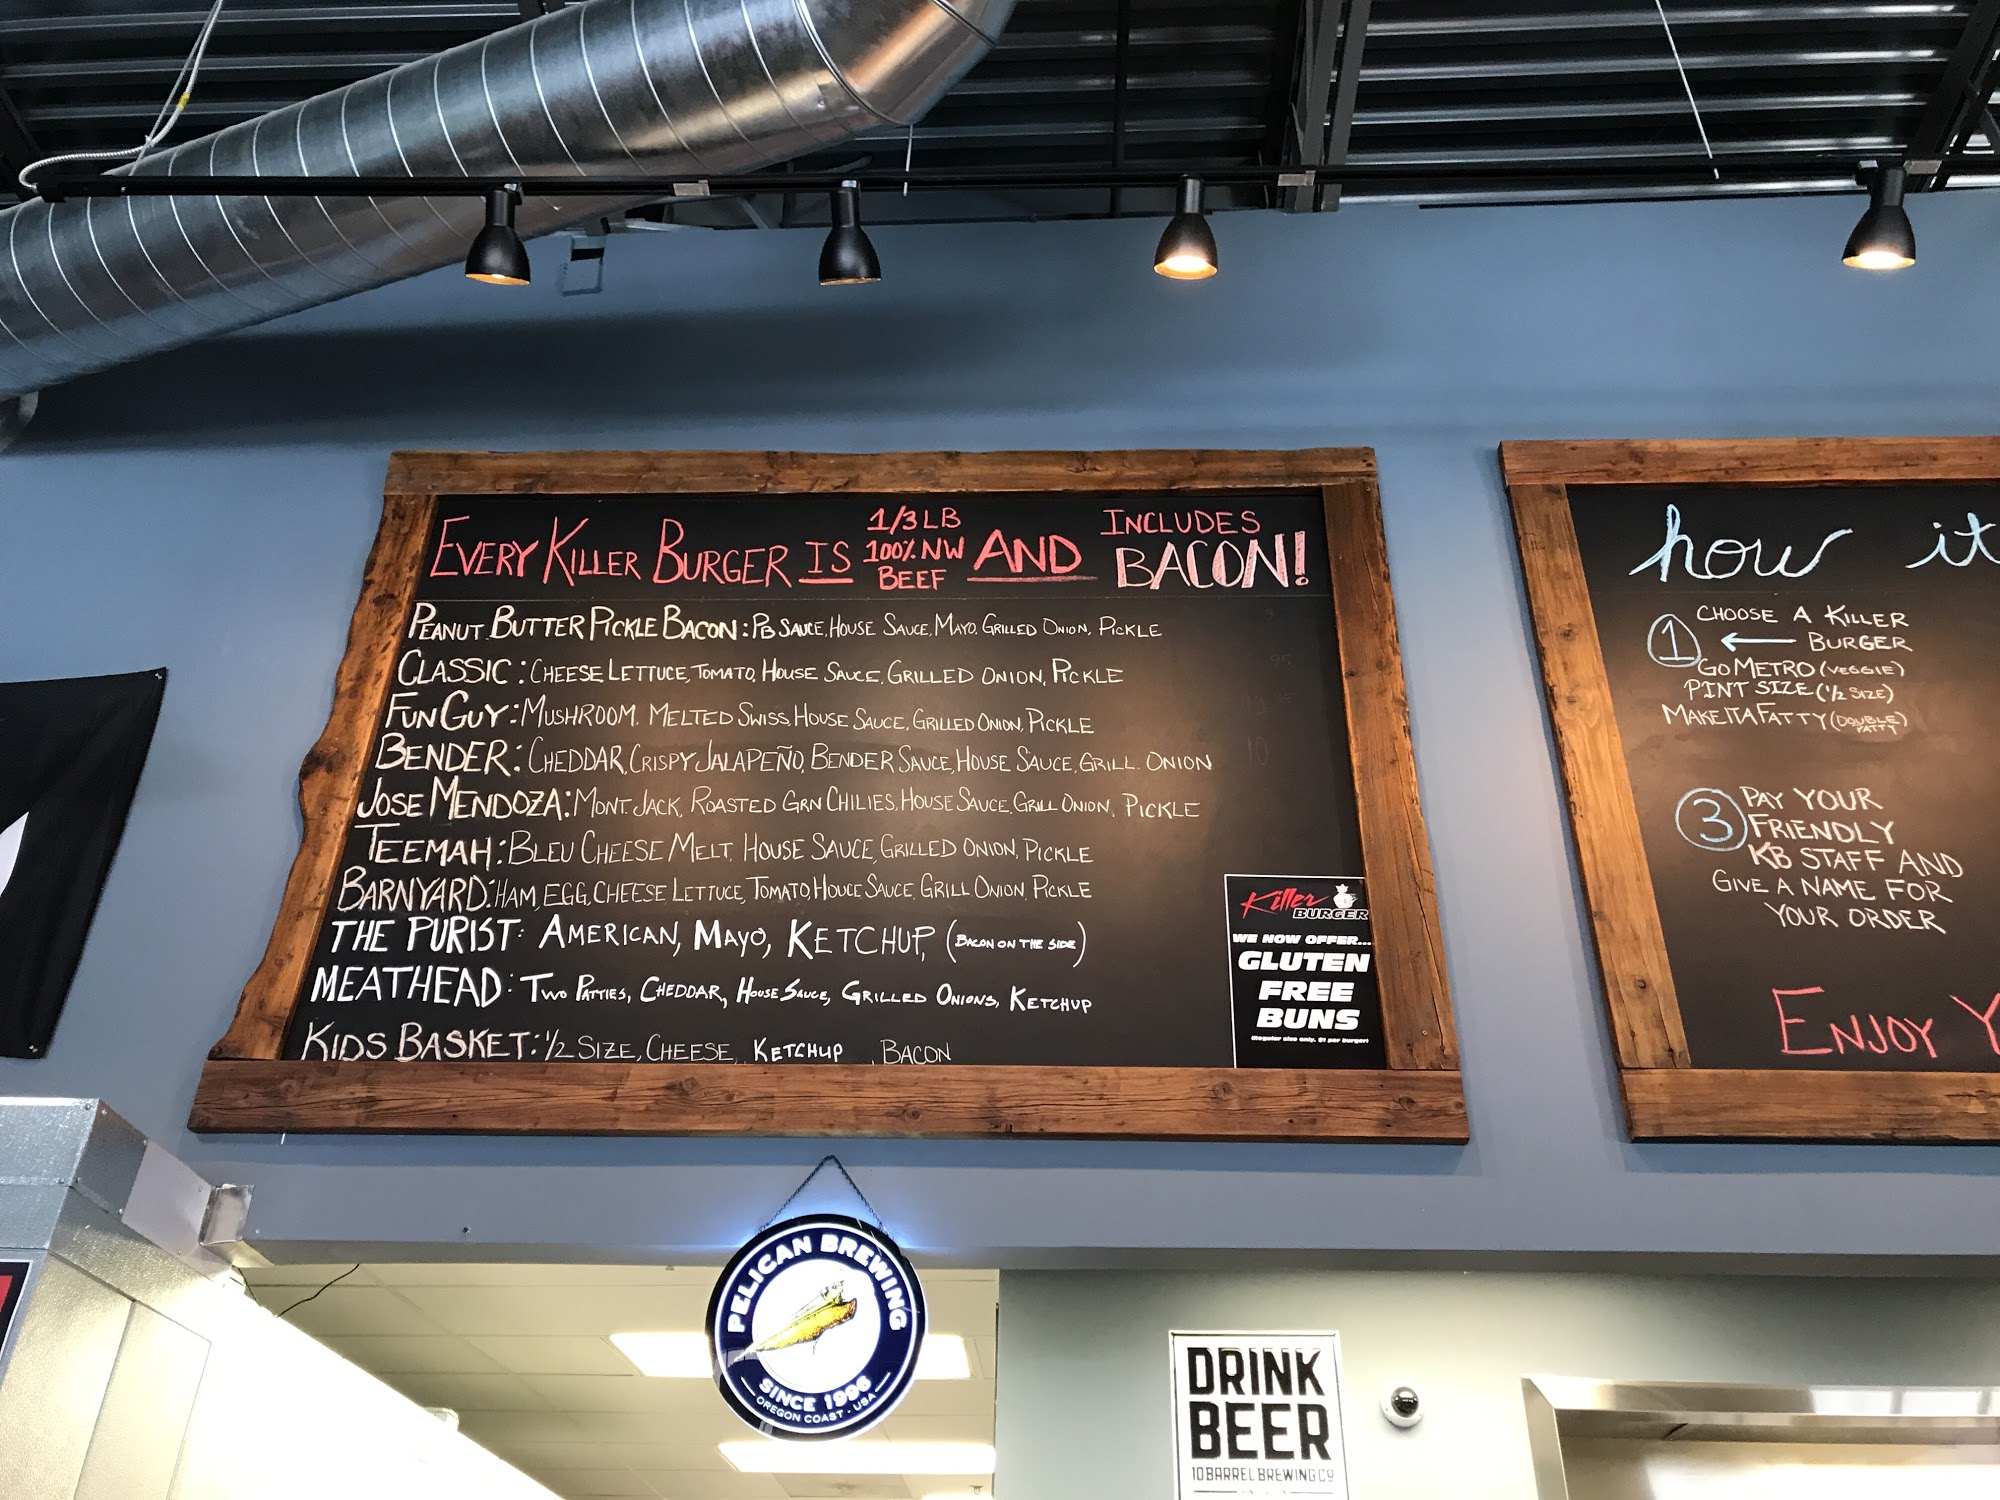 EVERY KILLER BURGER IS 1/3 LB 100% NW BEEF AND INCLUDES BACON!
PEANUT BUTTER PICKLE BACON: PB SAUCE, HOUSE SAUCE, MAYO, GRILLED ONION, PICKLE
CLASSIC: CHEESE LETTUCE, TOMATO, HOUSE SAUCE, GRILLED ONION, PICKLE
FUN GUY: MUSHROOM, MELTED SWISS, HOUSE SAUCE, GRILLED ONION, PICKLE
BENDER: CHEDDAR, CRISPY JALAPEÑO, BENDER SAUCE, HOUSE SAUCE, GRILL. ONION
JOSE MENDOZA: MONT. JACK, ROASTED GRN CHILIES, HOUSE SAUCE, GRILL ONION, PICKLE
TEEMAH: BLEU CHEESE MELT, HOUSE SAUCE, GRILLED ONION, PICKLE
BARNYARD: HAM, EGG, CHEESE LETTUCE, TOMATO, HOUCE SAUCE, GRILL ONION, PICKLE
THE PURIST: AMERICAN, MAYO, KETCHUP, (BACON ON THE SIDE)
MEATHEAD: TWO PATTIES, CHEDDAR, HOUSE SAUCE, GRILLED ONIONS, KETCHUP
KIDS BASKET: 1/2 SIZE, CHEESE, KETCHUP, BACON
Killer
BURGER
WE NOW OFFER...
GLUTEN
FREE
BUNS
(Regular size only. $1 per burger)
how it
1 CHOOSE A KILLER
← BURGER
GO METRO (VEGGIE)
PINT SIZE (1/2 SIZE)
MAKE IT A FATTY (DOUBLE PATTY)
3 PAY YOUR
FRIENDLY
KB STAFF AND
GIVE A NAME FOR
YOUR ORDER
ENJOY Y
PELICAN BREWING
SINCE 1996
OREGON COAST · USA
DRINK
BEER
10 BARREL BREWING CO